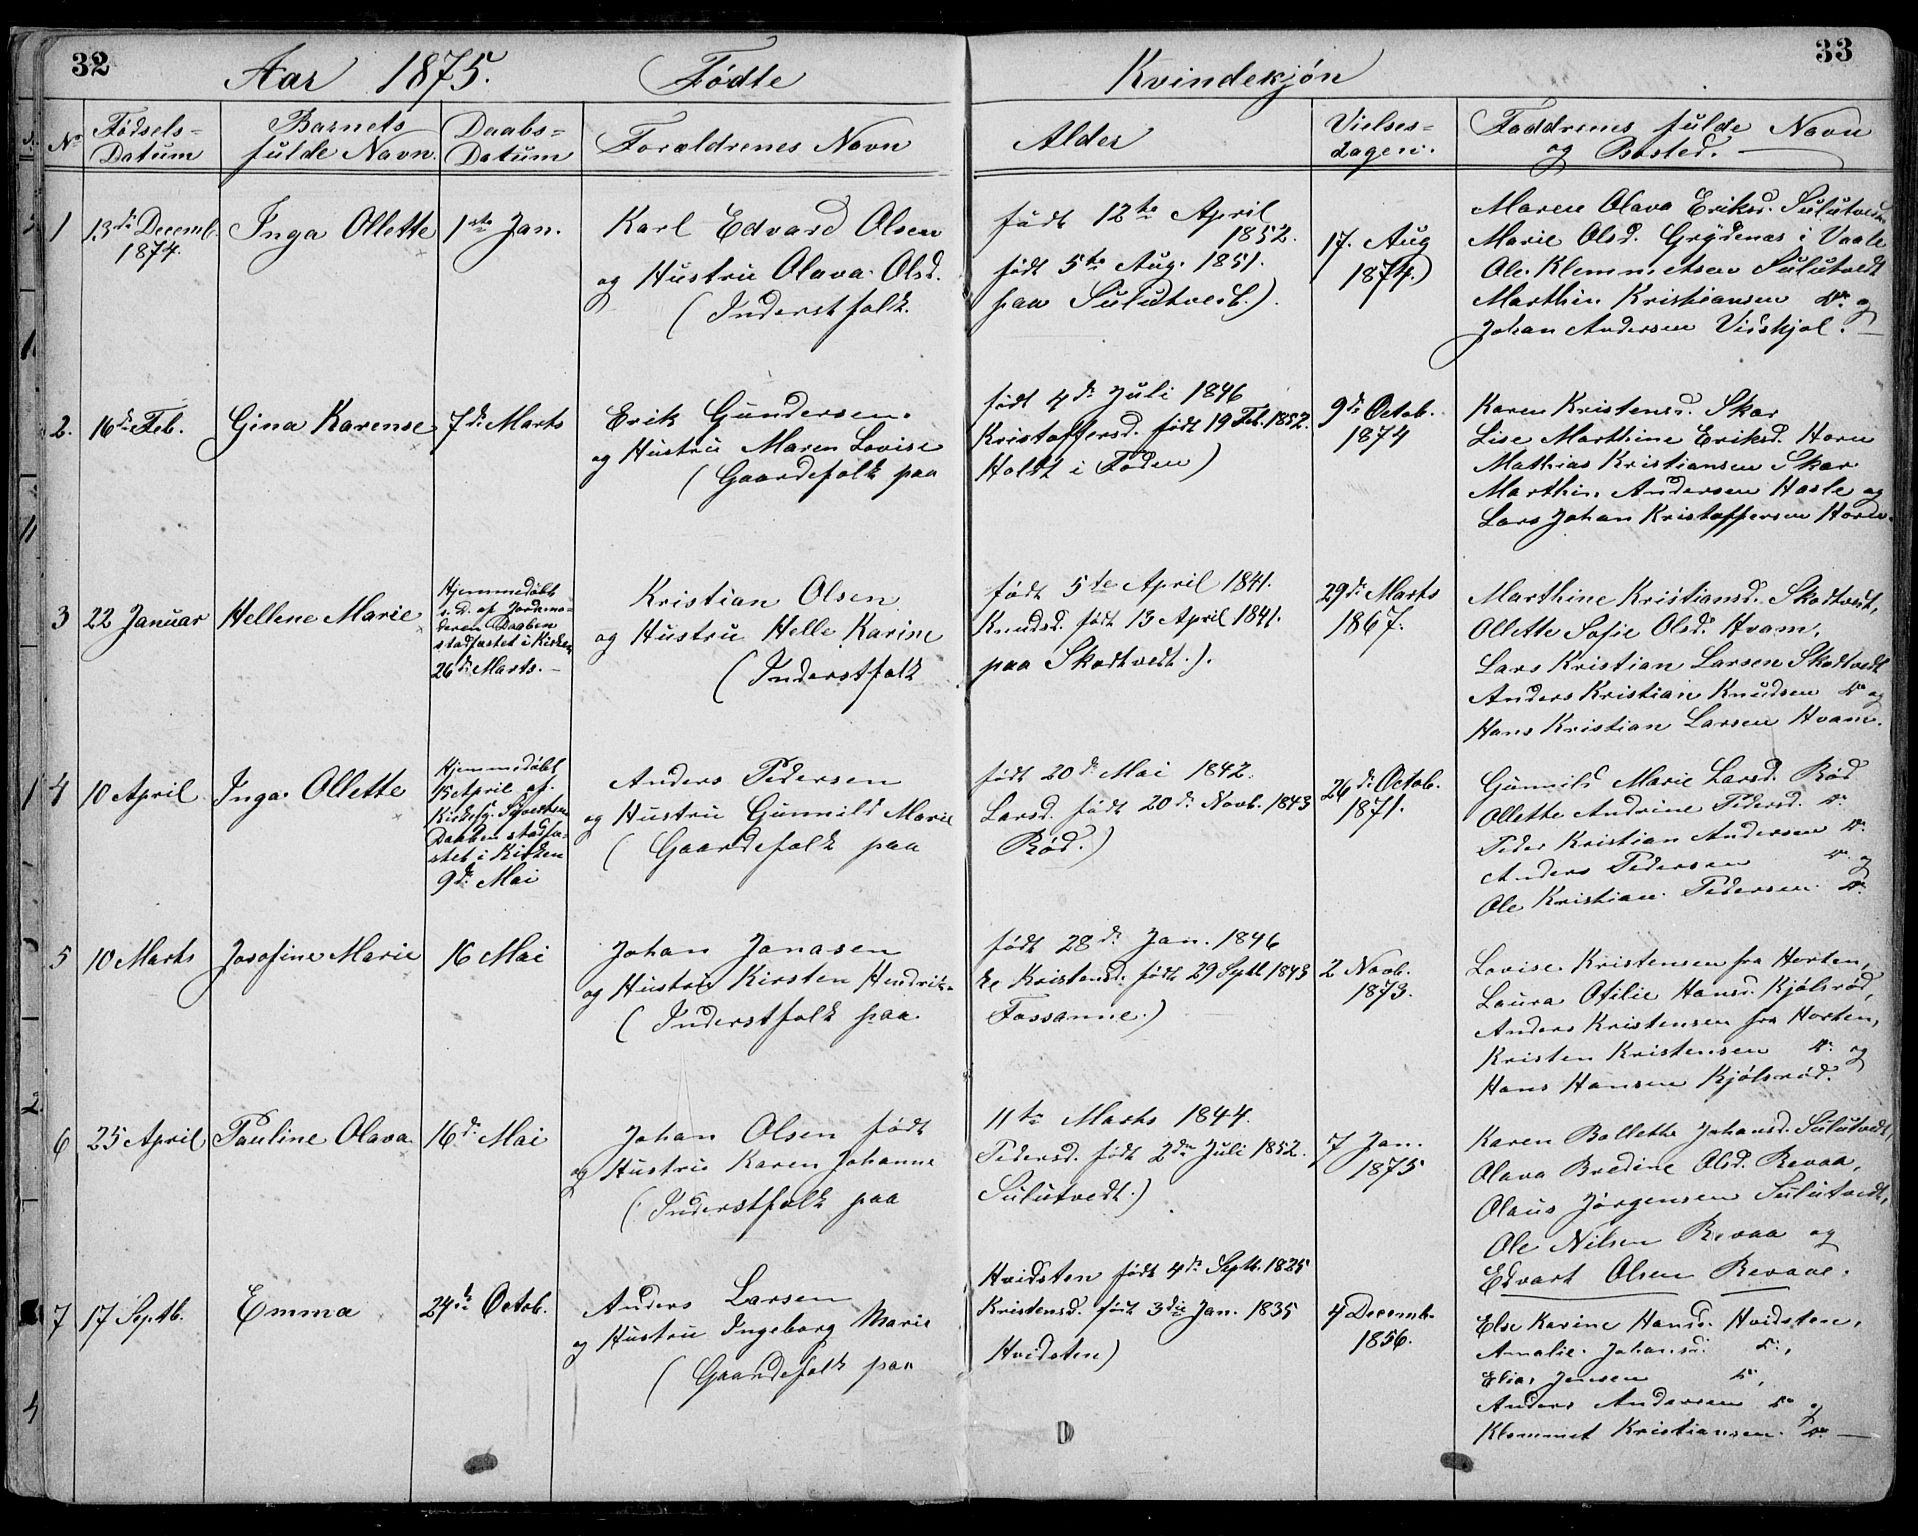 32
33
Aar 1875. Fødte Kvindekjøn
No
Fødsels=
Datum
Barnets
fulde Navn.
Daabs=
Datum
Forældrenes Navn
Alder
Vielses=
dagen:
Faddrenes fulde Navn
og Bosted.
1
13de Decemb.
1874.
Inga Ollette
1ste Jan.
Karl Edvard Olsen
og Hustru Olava Olsd.
(Inderstfolk.
født 12te April
1852.
født 5te Aug. 1851.
paa Sulutvedt.).
17. Aug
1874.)
Maren Olava Eriksd. Sulutvedt
Marie Olsd. Grydenas i Vaale
Ole Klemmetsen Sulutvedt
Marthin Kristiansen do og
Johan Andersen Viskjøl.
2.
16de Feb.
Gina Karense
7de Marts
Erik Gundersen.
og Hustru Maren Lovise
(Gaardefolk paa
født 4de Juli 1846
Kristoffersd. født 19 Feb. 1852.
Holdt i Foden)
9de Octob.
1874
Karen Kristensd. Skar
Lise Marthine Eriksd. Horn
Mathias Kristiansen Skar
Marthin Andersen Hasle og
Lars Johan Kristoffersen Horn.
3
22 Januar
Hellene Marie
Hjemmedøbt
s. D. af Jordemo=
deren Daaben
stadfæstet i Kirken
26de Marts.
Kristian Olsen
og Hustru Helle Karine
(Inderstfolk
født 5te April 1841.
Knudsd. født 13 April 1841.
paa Skodtvedt.).
29de Marts
1867.
Marthine Kristiansd. Skodtvedt,
Ollette Sofie Olsd. Hvam,
Lars Kristian Larsen Skodtvedt
Anders Kristian Knudsen do og
Hans Kristian Larsen Hvam.
4
10 April
Inga Ollette
Hjemmedøbt
15 April af
Kirkesg. Syvertsen
Daaben stadfæ=
stet i Kirken
9de Mai
Anders Pedersen
og Hustru Gunnild Marie
(Gaardefolk paa
født 20de Mai 1842.
Larsd. født 20de Novb. 1843
Rød.)
26de Octob.
1871.
Gunnild Marie Larsd. Rød
Ollette Andrine Pedersd. do
Peder Kristian Andersen do
Anders Pedersen do og
Ole Kristian Pedersen do
5
10 Marts
Josefine Marie
16 Mai
Johan Jonasen
og Hustru Kirsten Hendrik=
(Inderstfolk paa
født 28de Jan. 1846
ke Kristensd. født 29 Septb 1843
Fossanne.)
2 Novb.
1873.
Lovise Kristensen fra Horten,
Laura Otilie Hansd. Kjølsrød,
Anders Kristensen fra Horten,
Kristen Kristensen do og
Hans Hansen Kjølsrød.
6
25 April
Pauline Olava
16de Mai
Johan Olsen født
og Hustru Karen Johanne
(Inderstfolk paa
11te Marts 1844.
Pedersd. født 2den Juli 1852.
Sulutvedt.)
7 Jan.
1875
Karen Bollette Johansd. Sulutvedt,
Olava Bredine Olsd. Revaa,
Olaus Jørgensen Sulutvedt,
Ole Nilsen Revaa og
Edvart Olsen Revaae.
7
17 Septb.
Emma
24de Octob.
Anders Larsen
og Hustru Ingeborg Marie
(Gaardefolk paa
Hvidsten født 4de Septb. 1825
Kristensd. født 3die Jan. 1835
Hvidsten)
4 Decemb.
1856.
Else Karine Hansd. Hvidsten,
Amalie Johansd. do,
Elias Jensen do,
Anders Andersen do og
Klemmet Kristiansen. do